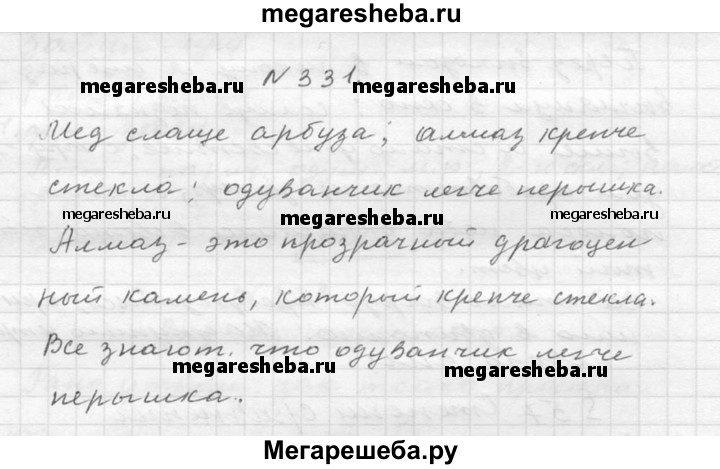 megaresheba.ru
N 331.
megaresheba.ru megaresheba.ru
Мед слаще арбуза; алмаз крепче
стекла; одуванчик легче перышка.
megaresheba.ru megaresheba.ru megaresheba.ru
Алмаз - это прозрачный драгоцен
ный камень, который крепче стекла.
Все знают, что одуванчик легче
megaresheba.ru megaresheba.ru
перышка.
Мегарешеба.ру